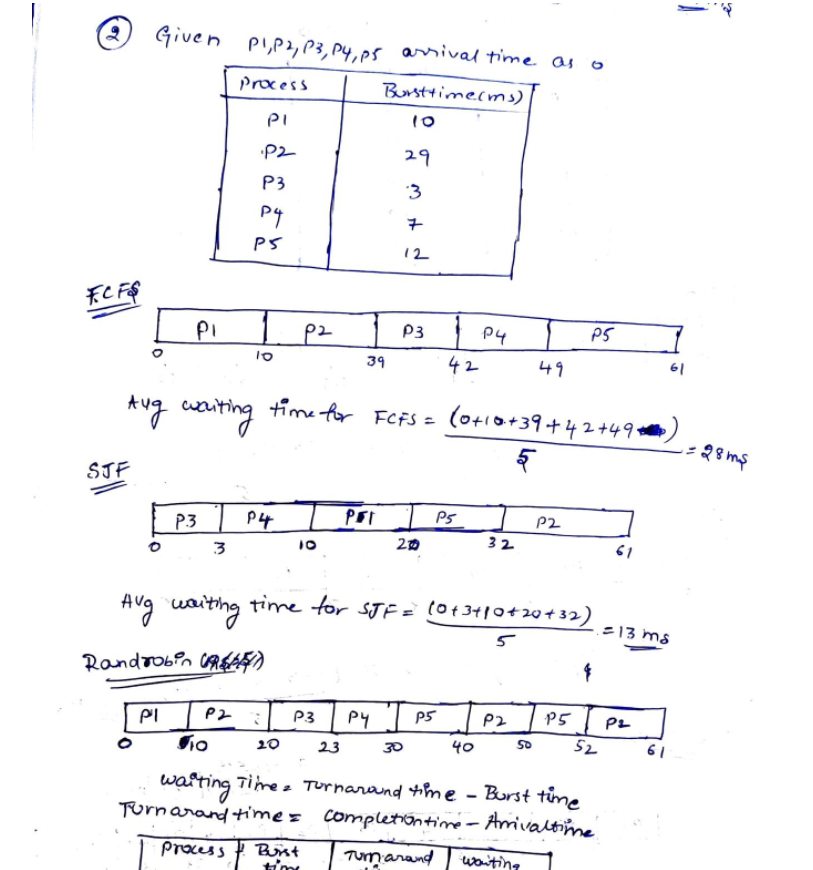 ② Given P1,P2,P3,P4,P5 arrival time as 0
Process Bursttime(ms)
P1 10
P2 29
P3 3
P4 7
P5 12
FCFS
P1 P2 P3 P4 P5
0 10 39 42 49 61
Avg waiting time for FCFS = (0+10+39+42+49)/5 = 28ms
SJF
P3 P4 P1 P5 P2
0 3 10 20 32 61
Avg waiting time for SJF = (0+3+10+20+32)/5 = 13 ms
Randrobin
P1 P2 P3 P4 P5 P2 P5 P2
0 10 20 23 30 40 50 52 61
waiting Time = Turnarand time - Burst time
Turnarand time = completiontime - Arrivaltime
process Burst Turnarand waiting
time